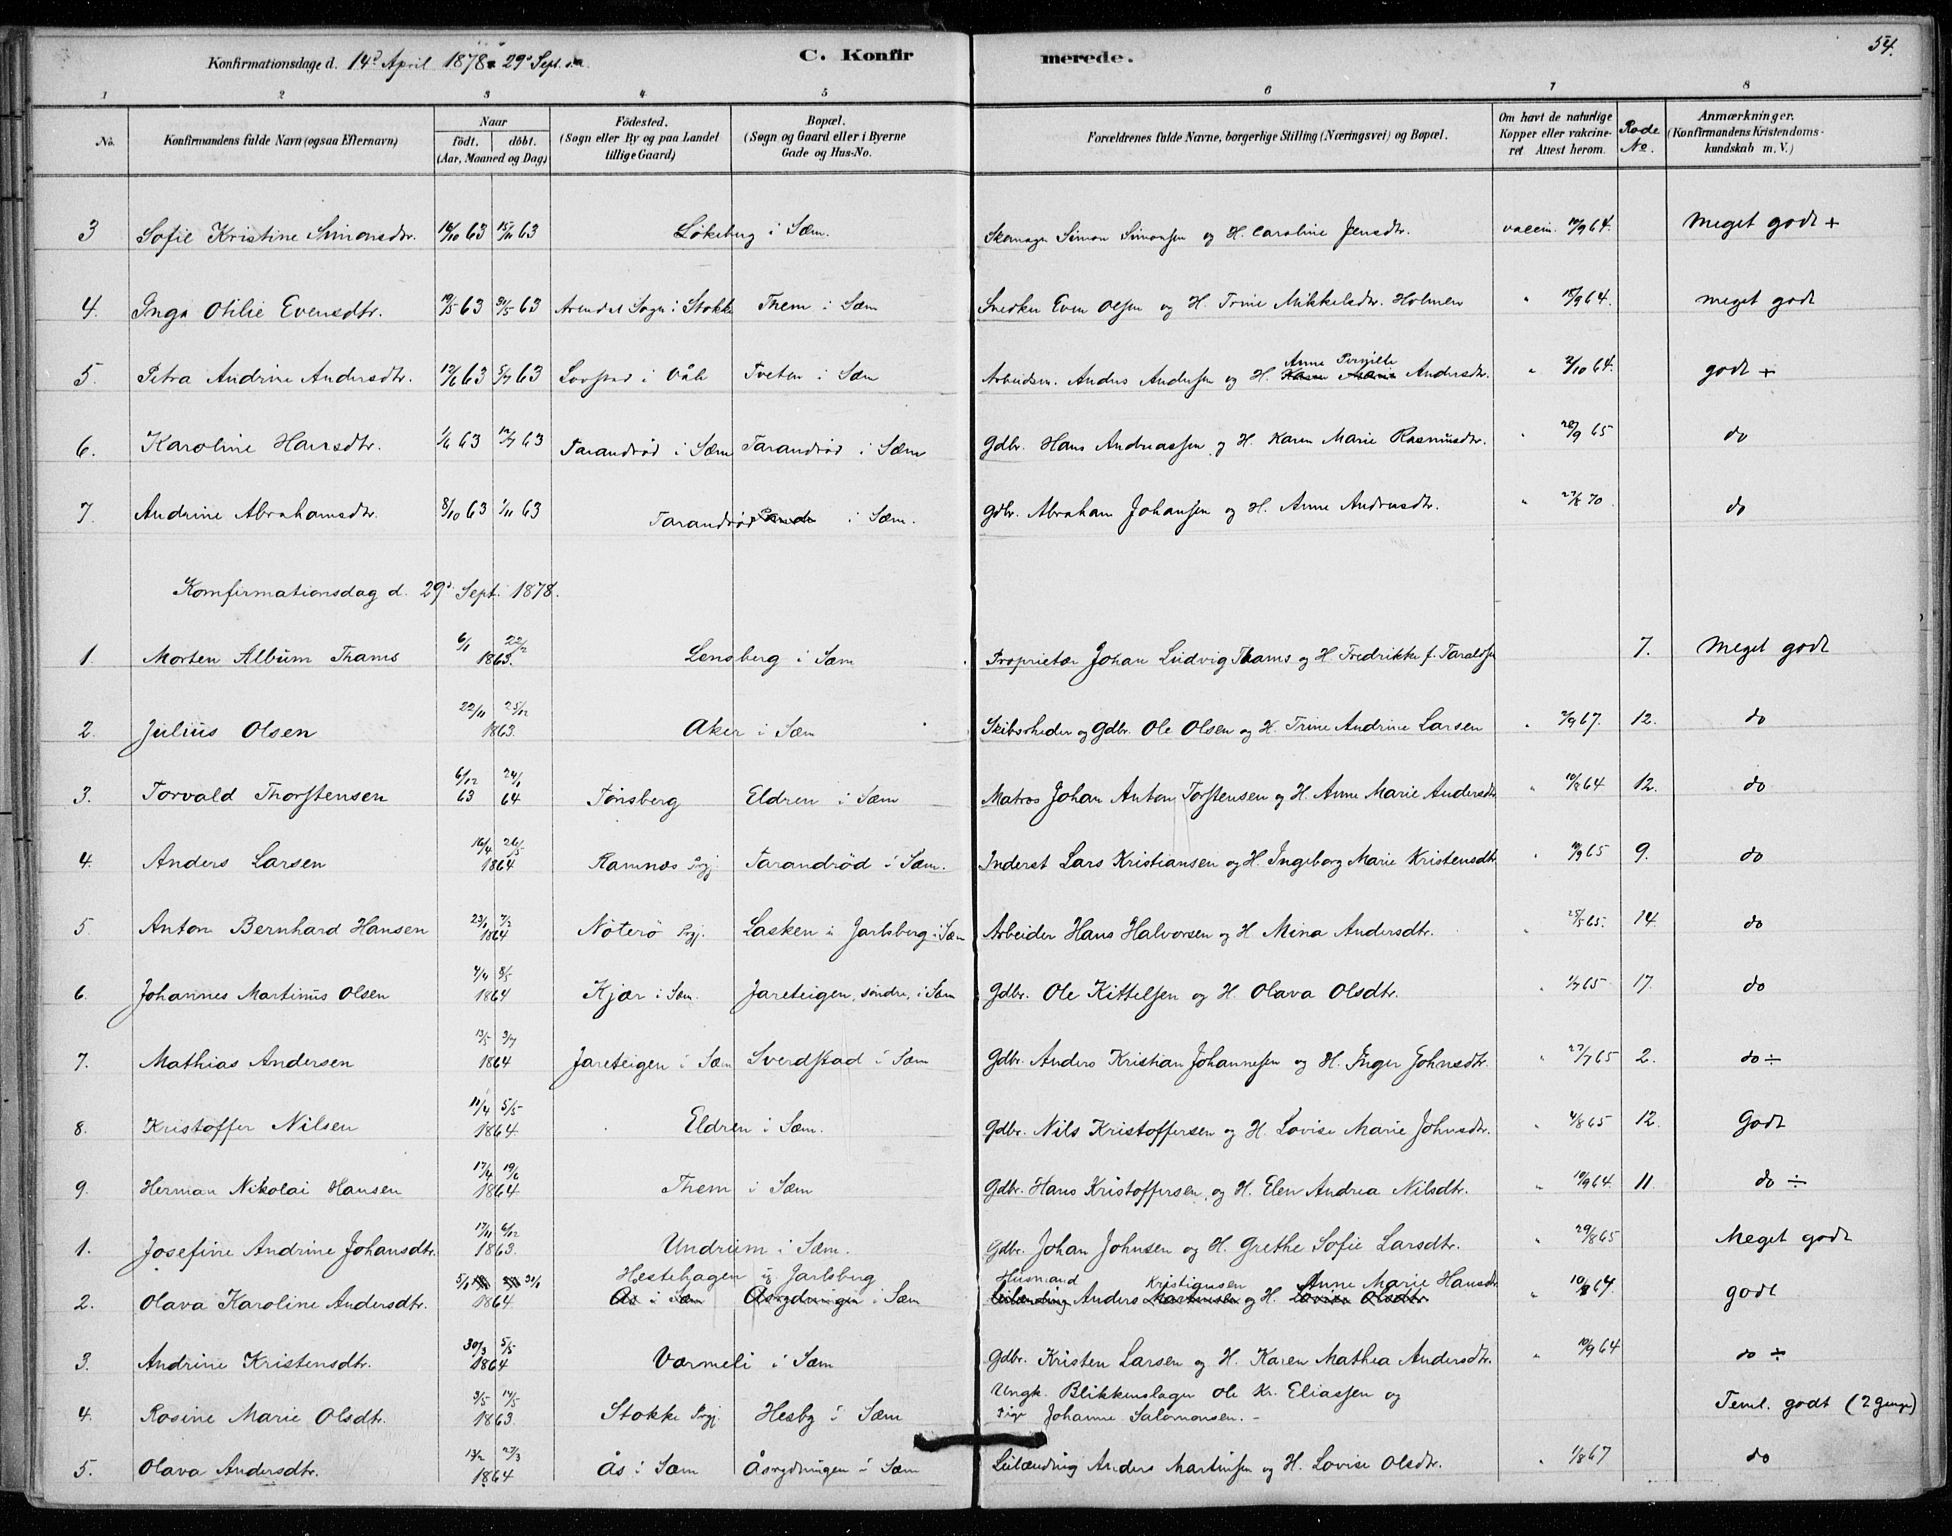 54.
Konfirmationsdage d. 14d April 1878 29d Sept. C. Konfir merede.
1 2 3 4 5 6 7 8
No. Konfirmandens fulde Navn (ogsaa Efternavn) Naar födt. döbt. (Aar, Maaned og Dag) Födested. (Sogn eller By og paa Landet tillige Gaard) Bopæl. (Sogn og Gaard eller i Byerne Gade og Hus-No. Forældrenes fulde Navne, borgerlige Stilling (Næringsvei) og Bopæl. Om havt de naturlige Kopper eller vakcineret Attest herom. Rode No. Anmærkninger. (Konfirmandens Kristendomskundskab m. V.)
3 Sofie Kristine Simonsdtr. 63 63 Lökeberg i Sæm. Skomager Simon Simonsen og H. Caroline Jensdtr. vaccin. 64. Meget godt +
4. Inga Otilie Evensdtr. 19/5 63 31/5 63 Arendal Sogn i Stokke Them i Sæm Snedker Even Olsen og H. Trine Mikkelsdtr. Holmen " 18/9 64. meget godt
5. Petra Andrine Andersdtr. 12/6 63 5/7 63 i Våle Tveten i Sæm Arbeidsm. Anders Andersen og H. Anne Pernille Andersdtr. " 3/10 64. godt +
6. Karoline Hansdtr. 1/6 63 12/7 63 Tarandrød i Sæm Tarandrød i Sæm Gdbr. Hans Andreassen og H. Karen Marie Rasmusdtr. " 28/9 65 do
7. Andrine Abrahamsdtr. 8/10 63 1/11 63 Tarandrød i Sæm. Gdbr. Abraham Johansen og H. Anne Andersdtr. " 27/6 70. do
Konfirmationsdag d. 29d Sept. 1878.
1. Morten Album Thams 6/1 22/2 1863. Lensberg i Sæm Proprietær Johan Ludvig Thams og H Fredrikke f. Taraldsen 7. Meget godt
2. Julius Olsen 22/11 25/12 1863. Aker i Sæm Skibsrheder og Gdbr. Ole Olsen og H. Trine Andrine Larsen " 2/9 67. 12. do
3. Torvald Thorstensen 6/12 63 24/1 64 Tönsberg Eldren i Sæm Matros Johan Anton Torstensen og H. Anne Marie Andersdtr " 10/8 64 12. do
4. Anders Larsen 16/4 26/5 1864 Ramnæs Prgj. Tarandrød i Sæm. Inderst Lars Kristiansen og H. Ingeborg Marie Kristensdtr " 65 9. do
5 Anton Bernhard Hansen 23/1 7/3 1864 Nöterö Prgj. Lasken i Jarlsberg i Sæm Arbeider Hans Halvorsen og H Mina Andersdtr. " 25/5 65. 14. do
6. Johannes Martinus Olsen 4/4 8/5 1864 Kjær i Sæm. Jareteigen, söndre, i Sæm Gdbr. Ole Kittelsen og H. Olava Olsdtr. " 1/7 65 17. do
7. Mathias Andersen 13/5 3/7 1864 Jareteigen i Sæm Sverdstad i Sæm Gdbr. Anders Kristian Johannesen og H. Inger Johnsdtr. " 27/7 65 2. do ÷
8. Kristoffer Nilsen 11/4 5/5 1864. Eldren i Sæm. Gdbr. Nils Kristoffersen og H. Lovise Marie Johnsdtr. " 4/8 65 12. Godt
9. Herman Nikolai Hansen 17/4 19/6 1864 Them i Sæm Gdbr. Hans Kristoffersen, og H. Elen Andrea Nilsdtr. " 10/9 64. 11. do ÷
1. Josefine Andrine Johansdtr. 17/11 6/12 1863. Undrum i Sæm. Gdbr. Johan Johnsen og H. Grethe Sofie Larsdtr. " 29/8 65 Meget godt
2. Olava Karoline Andersdtr. 1864 Hestehagen i Jarlsberg Ås i Sæm Åsrydningen i Sæm Husmand Leilænding Anders Kristiansen Martinsen og H. Anne Marie Hansdtr Lovise Olsdtr " 10/8 64. godt
3. Andrine Kristensdtr. 30/3 5/5 1864 Vormeli i Sæm Gdbr. Kristen Larsen og H. Karen Mathea Andersdtr. " 10/9 64 do ÷
4. Rosine Marie Olsdtr. 3/5 14/5 1863. Stokke Prgj. Hesby i Sæm Ungk. Blikkenslager Ole Kr. Eliassen og Pige Johanne Salomonsen. - Teml. godt (2 Gange)
5. Olava Andersdtr. 13/2 27/3 1864 Ås i Sæm Åsrydningen i Sæm Leilænding Anders Martinsen og H. Lovise Olsdtr. " 1/8 67 do